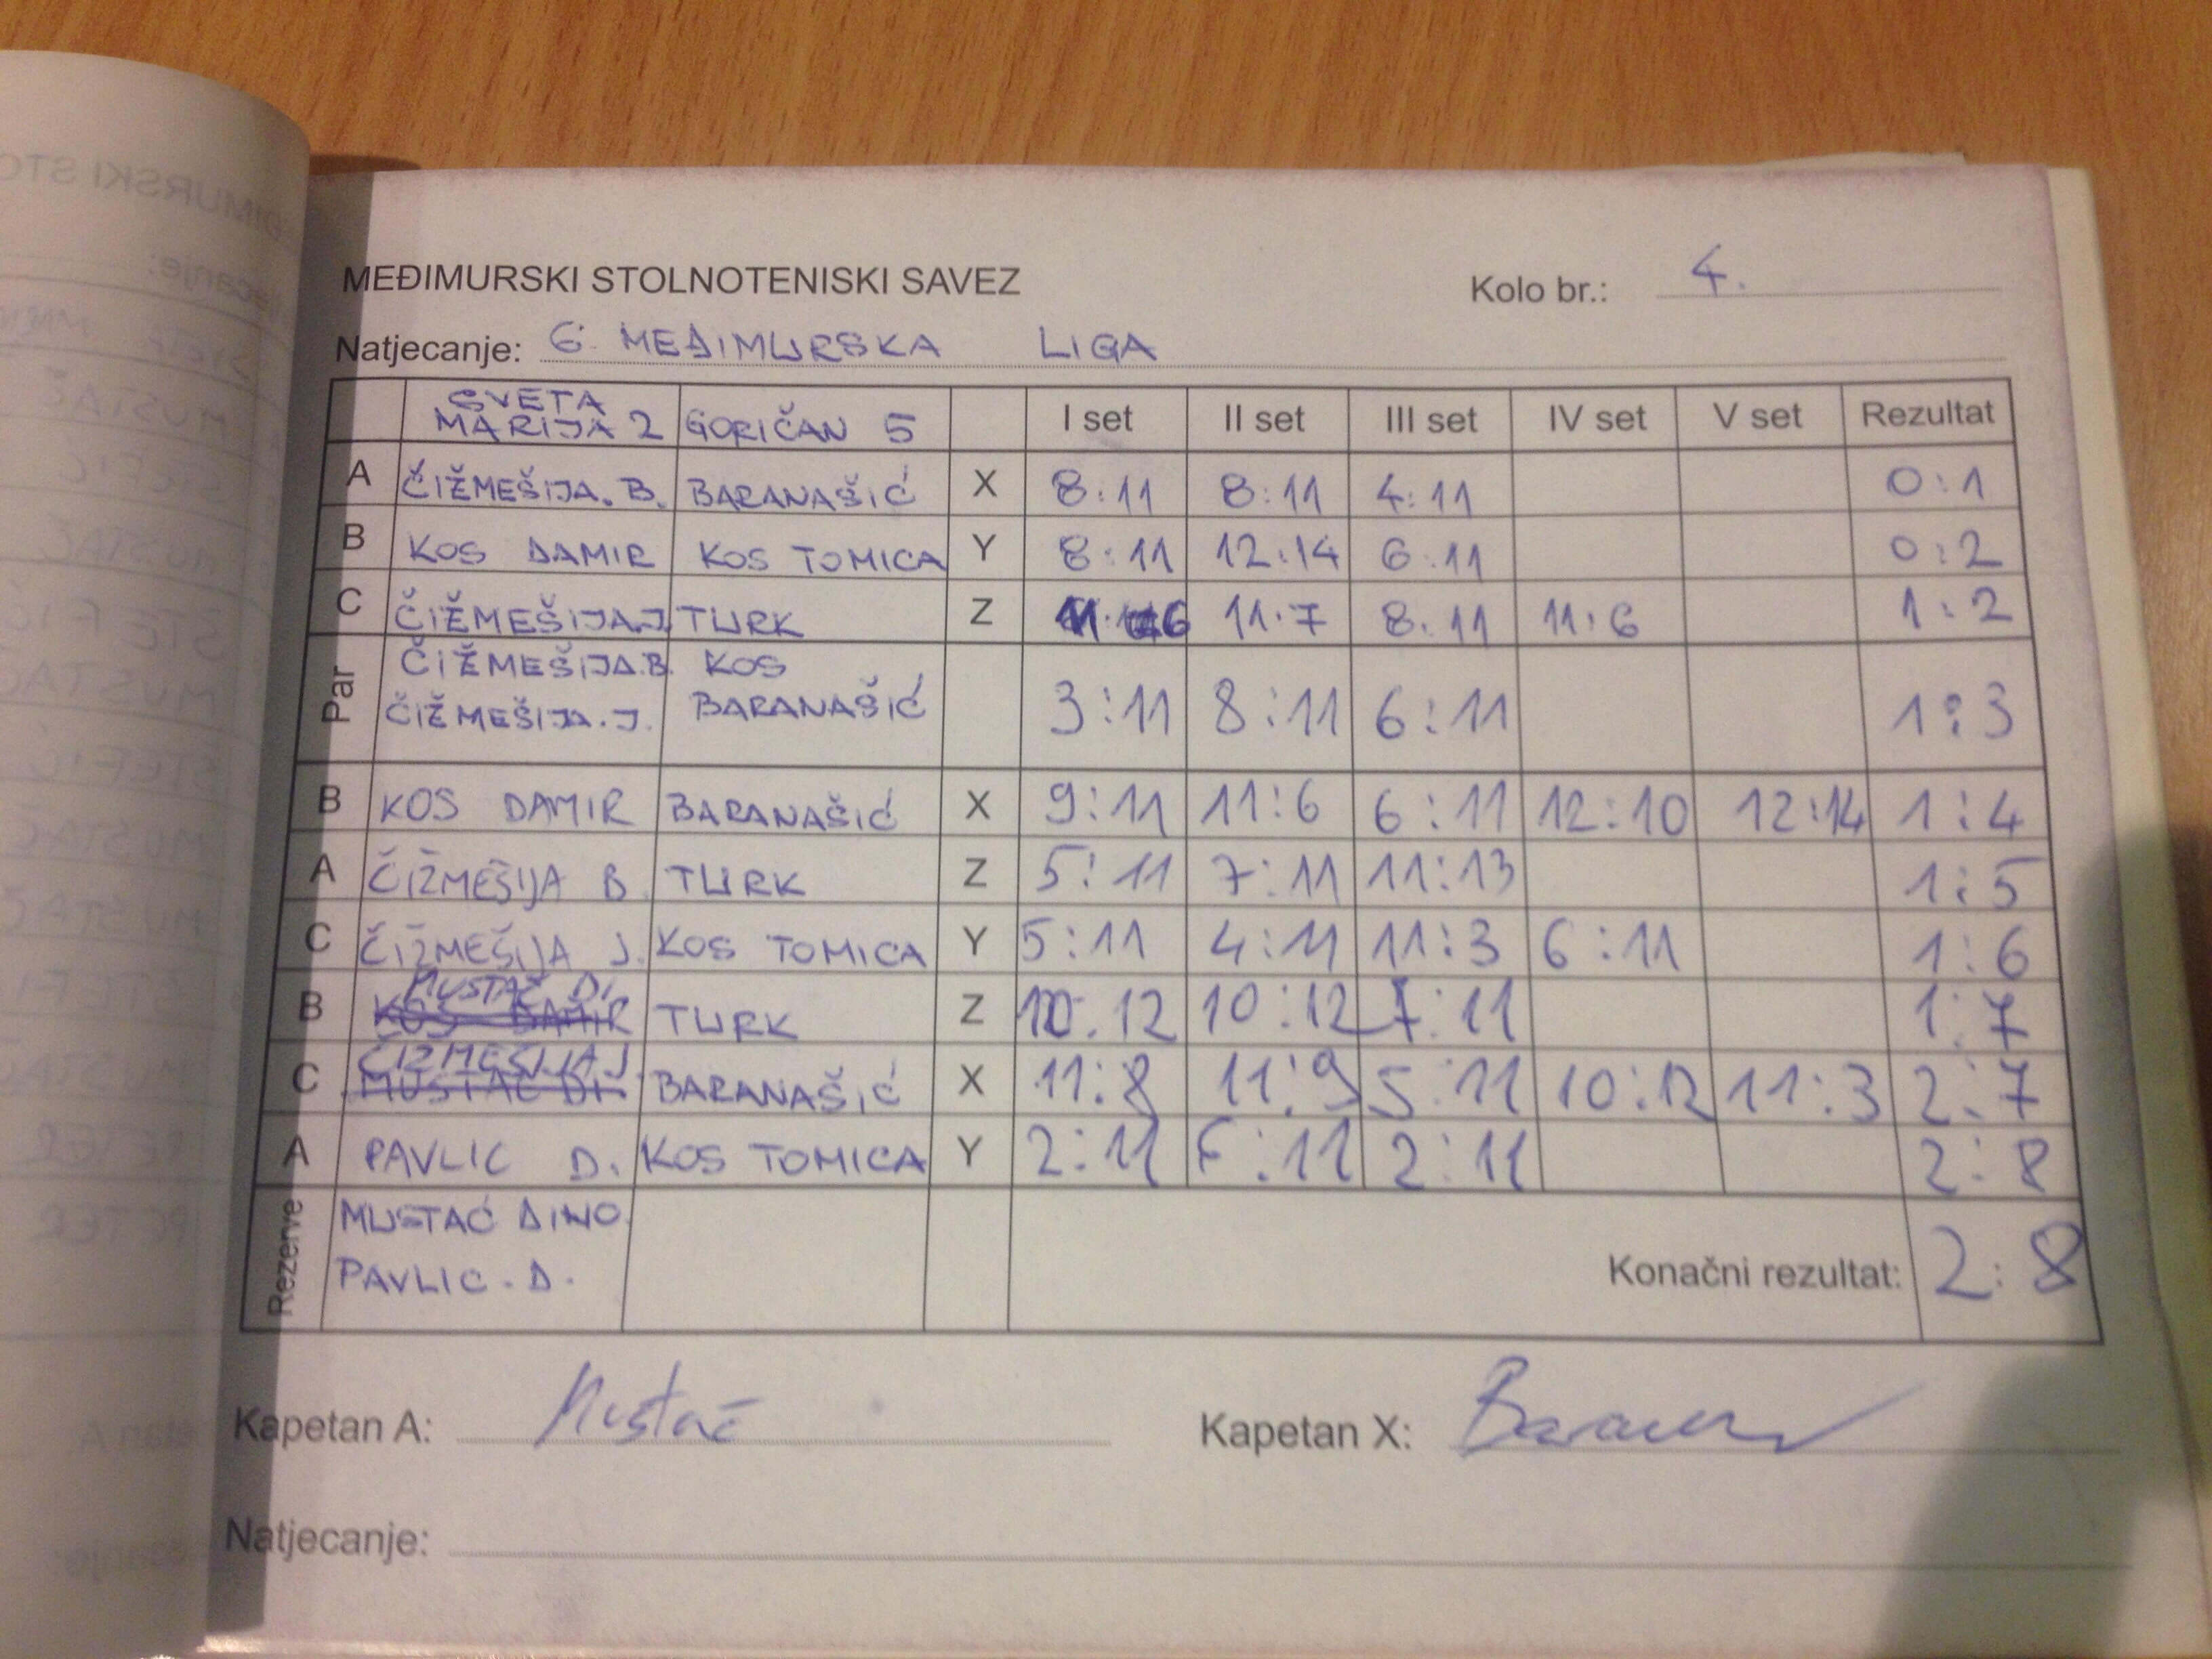 MEĐIMURSKI STOLNOTENISKI SAVEZ Kolo br.: 4.
Natjecanje: 6. MEĐIMURSKA LIGA
SVETA MARIJA 2 GORIČAN 5 I set II set III set IV set V set Rezultat
A ČIŽMEŠIJA. B. BARANAŠIĆ X 8:11 8:11 4:11 0:1
B KOS DAMIR KOS TOMICA Y 8:11 12:14 6:11 0:2
C ČIŽMEŠIJA J. TURK Z 11:6 11:7 8:11 11:6 1:2
Par ČIŽMEŠIJA.B. KOS
ČIŽMEŠIJA.J. BARANAŠIĆ 3:11 8:11 6:11 1:3
B KOS DAMIR BARANAŠIĆ X 9:11 11:6 6:11 12:10 12:14 1:4
A ČIŽMEŠIJA B. TURK Z 5:11 7:11 11:13 1:5
C ČIŽMEŠIJA J. KOS TOMICA Y 5:11 4:11 11:3 6:11 1:6
MUSTAČ D.
B KOS DAMIR TURK Z 10:12 10:12 7:11 1:7
ČIŽMEŠIJA J.
C MUSTAČ D. BARANAŠIĆ X 11:8 11:9 5:11 10:12 11:3 2:7
A PAVLIC D. KOS TOMICA Y 2:11 6:11 2:11 2:8
Rezerve MUSTAĆ DINO
PAVLIC. D. Konačni rezultat: 2:8
Kapetan A: Mustač Kapetan X:
Natjecanje: